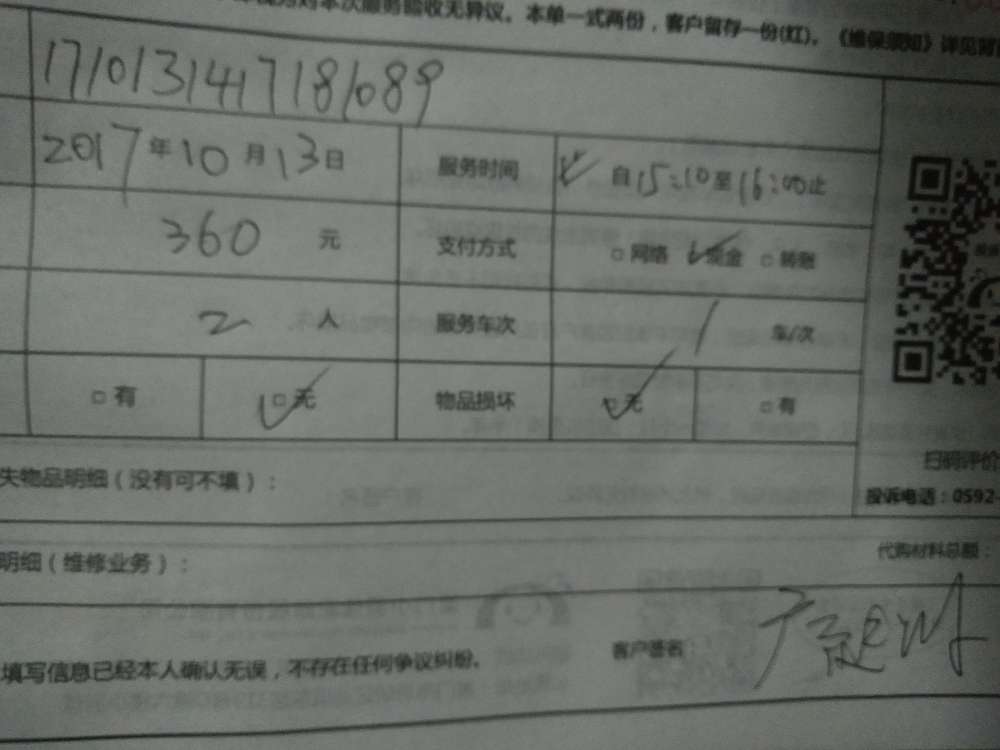 对本次服务验收无异议。本单一式两份，客户留存一份(红)。《维保须知》详见附
1710131417181089
2017年10月13日 服务时间 自15:10至16:00止
360 元 支付方式 □网络 现金 □转账
2 人 服务车次 1 车/次
□有 □无 物品损坏 无 □有
扫码评价
失物品明细（没有可不填）：
投诉电话：0592-
明细（维修业务）：
代购材料总额：
填写信息已经本人确认无误，不存在任何争议纠纷。 客户签名：